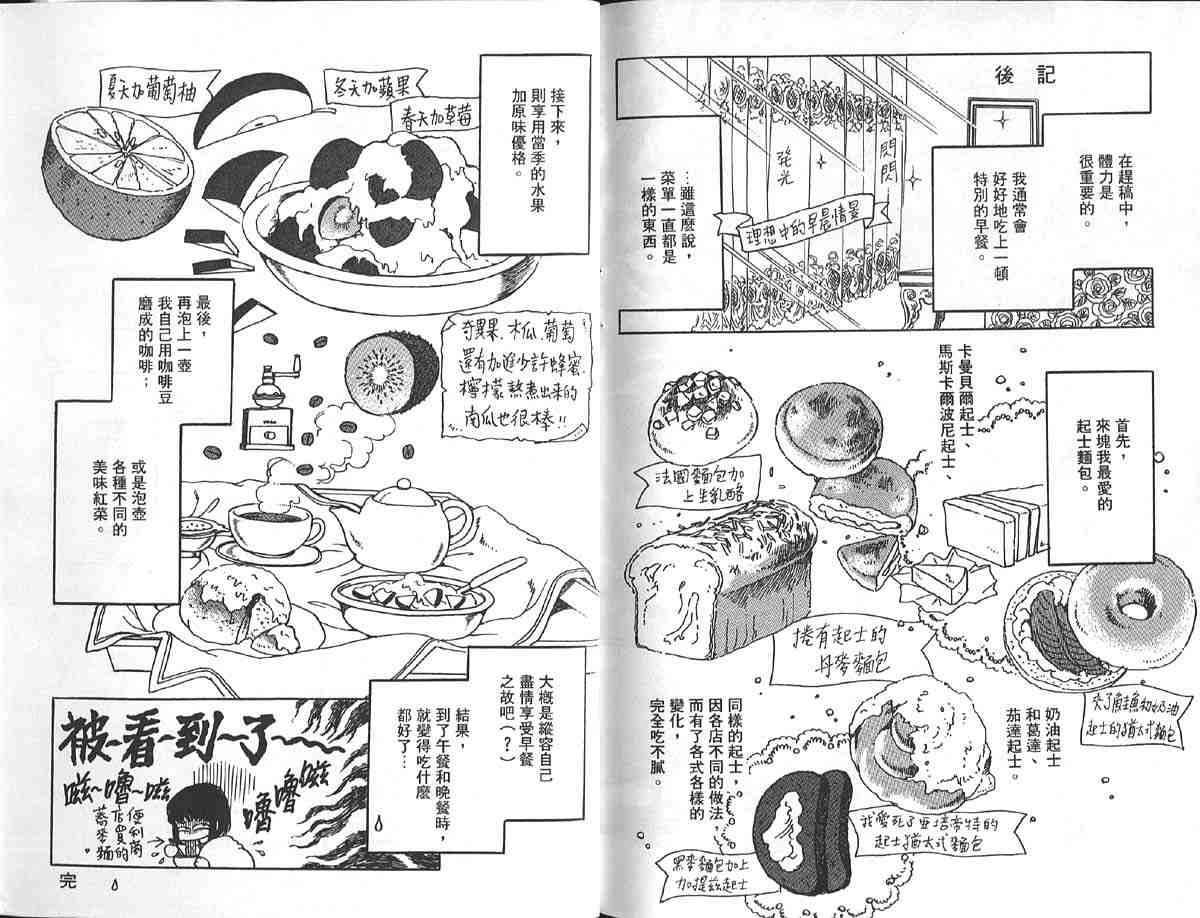 後記
在趕稿中，
體力是
很重要的。
我通常會
好好地吃上一頓
特別的早餐。
閃閃
發光
理想中的早晨情景
…雖這麼說，
菜單一直都是
一樣的東西。
首先，
來塊我最愛的
起士麵包。
卡曼貝爾起士、
馬斯卡爾波尼起士、
法國麵包加
上生乳酪
捲有起士的
丹麥麵包
奶油
起士的猶太式麵包
奶油起士
和葛達、
茄達起士。
同樣的起士，
因各店不同的做法，
而有了各式各樣的
變化，
完全吃不膩。
我愛死了亞塔帝特的
起士猶太式麵包
黑麥麵包加上
加提茲起士
接下來，
則享用當季的水果
加原味優格。
春天加草莓
冬天加蘋果
夏天加葡萄柚
奇異果、木瓜、葡萄
還有加進少許蜂蜜、
檸檬熬煮出來的
南瓜也很棒!!
最後，
再泡上一壺
我自己用咖啡豆
磨成的咖啡；
或是泡壺
各種不同的
美味紅茶。
大概是縱容自己
盡情享受早餐
之故吧（？）
結果，
到了午餐和晚餐時，
就變得吃什麼
都好了…
被~看~到~了~
滋嚕嚕
滋~嚕~滋
便利商
店買的
蕎麥麵。
完